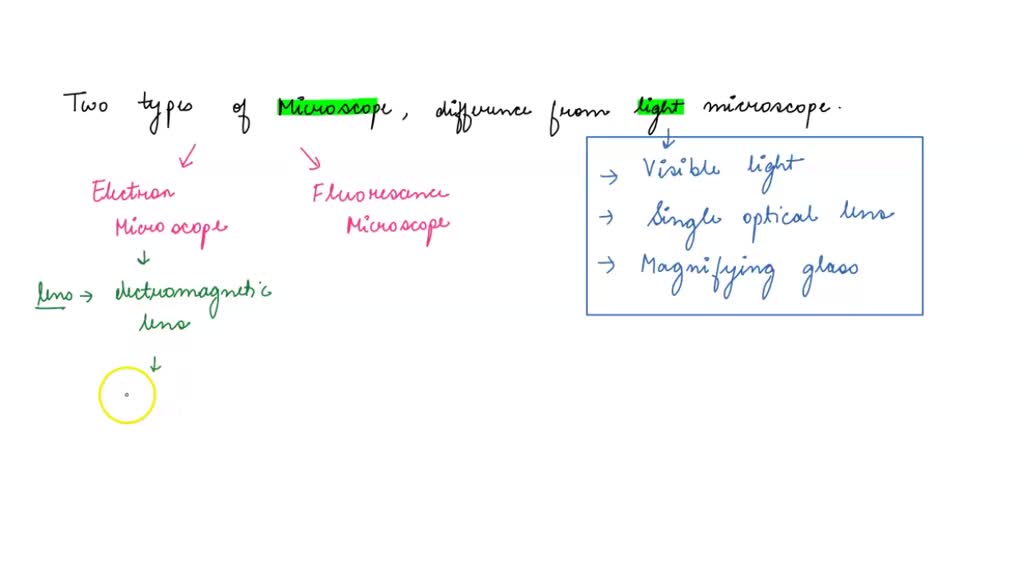 Two types of Microscope, difference from light microscope.
Electron Microscope
Fluorescence Microscope
lens → electromagnetic lens
→ Visible light
→ Single optical lens
→ Magnifying glass